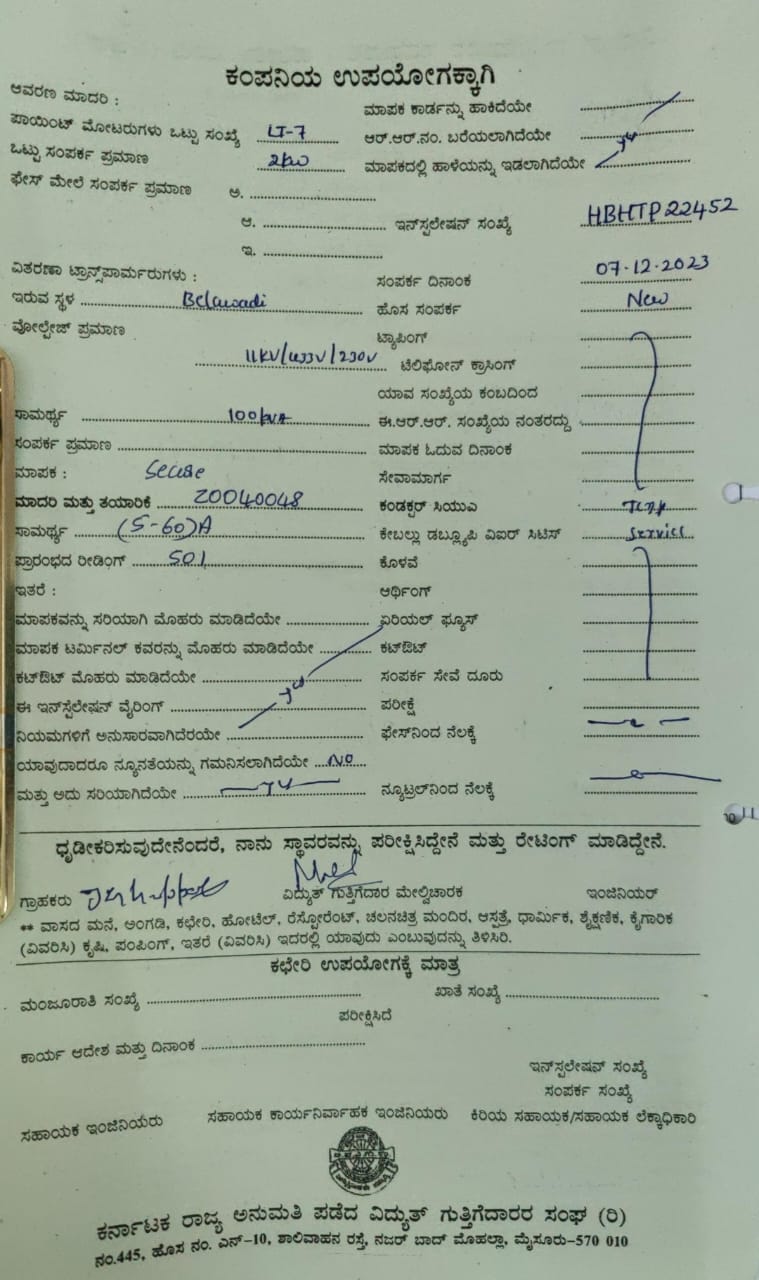 ಕಂಪನಿಯ ಉಪಯೋಗಕ್ಕಾಗಿ
ಆವರಣ ಮಾದರಿ : ಮಾಪಕ ಕಾರ್ಡನ್ನು ಹಾಕಿದೆಯೇ
ಪಾಯಿಂಟ್ ಮೋಟರುಗಳು ಒಟ್ಟು ಸಂಖ್ಯೆ LT-7 ಆರ್.ಆರ್.ನಂ. ಬರೆಯಲಾಗಿದೆಯೇ
ಒಟ್ಟು ಸಂಪರ್ಕ ಪ್ರಮಾಣ 2kw ಮಾಪಕದಲ್ಲಿ ಹಾಳೆಯನ್ನು ಇಡಲಾಗಿದೆಯೇ
ಫೇಸ್ ಮೇಲೆ ಸಂಪರ್ಕ ಪ್ರಮಾಣ ಅ.
ಆ. ಇನ್‌ಸ್ಟಲೇಷನ್ ಸಂಖ್ಯೆ HBHTP22452
ಇ.
ವಿತರಣಾ ಟ್ರಾನ್ಸ್‌ಪಾರ್ಮರುಗಳು : ಸಂಪರ್ಕ ದಿನಾಂಕ 07-12-2023
ಇರುವ ಸ್ಥಳ Belawadi ಹೊಸ ಸಂಪರ್ಕ New
ವೋಲ್ಟೇಜ್ ಪ್ರಮಾಣ ಟ್ಯಾಪಿಂಗ್
11KV/433V/230V ಟೆಲಿಫೋನ್ ಕ್ರಾಸಿಂಗ್
ಯಾವ ಸಂಖ್ಯೆಯ ಕಂಬದಿಂದ
ಸಾಮರ್ಥ್ಯ 100kVA ಈ.ಆರ್.ಆರ್. ಸಂಖ್ಯೆಯ ನಂತರದ್ದು
ಸಂಪರ್ಕ ಪ್ರಮಾಣ ಮಾಪಕ ಓದುವ ದಿನಾಂಕ
ಮಾಪಕ : Secure ಸೇವಾಮಾರ್ಗ
ಮಾದರಿ ಮತ್ತು ತಯಾರಿಕೆ 20040048 ಕಂಡಕ್ಟರ್ ಸಿಯುಎ
ಸಾಮರ್ಥ್ಯ (5-60)A ಕೇಬಲ್ಲು ಡಬ್ಲ್ಯೂಪಿ ವಿಐರ್ ಸಿಟಿಸ್ Service
ಪ್ರಾರಂಭದ ರೀಡಿಂಗ್ 501 ಕೊಳವೆ
ಇತರೆ : ಆರ್ಥಿಂಗ್
ಮಾಪಕವನ್ನು ಸರಿಯಾಗಿ ಮೊಹರು ಮಾಡಿದೆಯೇ ಏರಿಯಲ್ ಫ್ಯೂಸ್
ಮಾಪಕ ಟರ್ಮಿನಲ್ ಕವರನ್ನು ಮೊಹರು ಮಾಡಿದೆಯೇ ಕಟ್‌ಔಟ್
ಕಟ್‌ಔಟ್ ಮೊಹರು ಮಾಡಿದೆಯೇ ಸಂಪರ್ಕ ಸೇವೆ ದೂರು
ಈ ಇನ್‌ಸ್ಟೆಲೇಷನ್ ವೈರಿಂಗ್ ಪರೀಕ್ಷೆ
ನಿಯಮಗಳಿಗೆ ಅನುಸಾರವಾಗಿದೆರಯೇ ಫೇಸ್‌ನಿಂದ ನೆಲಕ್ಕೆ
ಯಾವುದಾದರೂ ನ್ಯೂನತೆಯನ್ನು ಗಮನಿಸಲಾಗಿದೆಯೇ NO
ಮತ್ತು ಅದು ಸರಿಯಾಗಿದೆಯೇ ನ್ಯೂಟ್ರಲ್‌ನಿಂದ ನೆಲಕ್ಕೆ
ಧೃಢೀಕರಿಸುವುದೇನೆಂದರೆ, ನಾನು ಸ್ಥಾವರವನ್ನು ಪರೀಕ್ಷಿಸಿದ್ದೇನೆ ಮತ್ತು ರೇಟಿಂಗ್ ಮಾಡಿದ್ದೇನೆ.
ಗ್ರಾಹಕರು ವಿದ್ಯುತ್ ಗುತ್ತಿಗೆದಾರ ಮೇಲ್ವಿಚಾರಕ ಇಂಜಿನಿಯರ್
** ವಾಸದ ಮನೆ, ಅಂಗಡಿ, ಕಛೇರಿ, ಹೋಟೆಲ್, ರೆಸ್ಟೋರೆಂಟ್, ಚಲನಚಿತ್ರ ಮಂದಿರ, ಆಸ್ಪತ್ರೆ, ಧಾರ್ಮಿಕ, ಶೈಕ್ಷಣಿಕ, ಕೈಗಾರಿಕ
(ವಿವರಿಸಿ) ಕೃಷಿ, ಪಂಪಿಂಗ್, ಇತರೆ (ವಿವರಿಸಿ) ಇದರಲ್ಲಿ ಯಾವುದು ಎಂಬುವುದನ್ನು ತಿಳಿಸಿರಿ.
ಕಛೇರಿ ಉಪಯೋಗಕ್ಕೆ ಮಾತ್ರ
ಮಂಜೂರಾತಿ ಸಂಖ್ಯೆ ಖಾತೆ ಸಂಖ್ಯೆ
ಪರೀಕ್ಷಿಸಿದೆ
ಕಾರ್ಯ ಆದೇಶ ಮತ್ತು ದಿನಾಂಕ
ಇನ್‌ಸ್ಟಲೇಷನ್ ಸಂಖ್ಯೆ
ಸಂಪರ್ಕ ಸಂಖ್ಯೆ
ಸಹಾಯಕ ಇಂಜಿನಿಯರು ಸಹಾಯಕ ಕಾರ್ಯನಿರ್ವಾಹಕ ಇಂಜಿನಿಯರು ಕಿರಿಯ ಸಹಾಯಕ/ಸಹಾಯಕ ಲೆಕ್ಕಾಧಿಕಾರಿ
ಕರ್ನಾಟಕ ರಾಜ್ಯ ಅನುಮತಿ ಪಡೆದ ವಿದ್ಯುತ್ ಗುತ್ತಿಗೆದಾರರ ಸಂಘ (ರಿ)
ನಂ.445, ಹೊಸ ನಂ. ಎನ್-10, ಶಾಲಿವಾಹನ ರಸ್ತೆ, ನಜರ್ ಬಾದ್ ಮೊಹಲ್ಲಾ, ಮೈಸೂರು-570 010